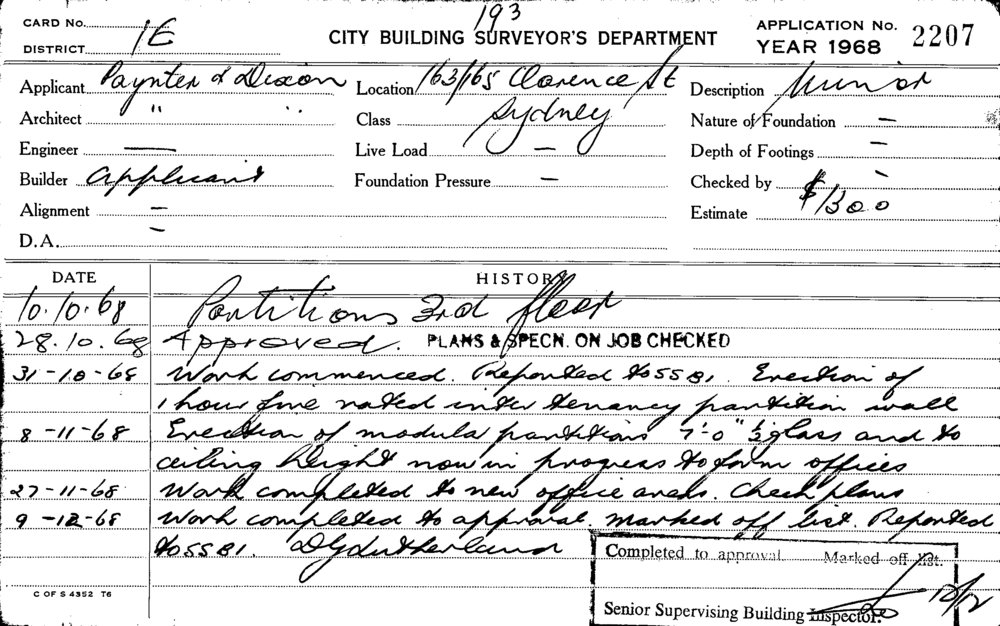 193
CARD No.
DISTRICT 1E
CITY BUILDING SURVEYOR'S DEPARTMENT
APPLICATION No. 2207
YEAR 1968
Applicant Paynter & Dixon
Location 163/165 Clarence St
Description Minor
Architect " "
Class Sydney
Nature of Foundation —
Engineer —
Live Load —
Depth of Footings —
Builder Applicant
Foundation Pressure —
Checked by -
Alignment —
Estimate $1300
D.A. —
DATE HISTORY
10.10.68 Partitions 3rd floor
28.10.68 Approved. PLANS & SPECN. ON JOB CHECKED
31-10-68 Work commenced. Reported to SSBI. Erection of
1 hour fire rated inter tenancy partition wall
8-11-68 Erection of modula partitions 7'-0" ½ glass and to
ceiling height now in progress to form offices
27-11-68 Work completed to new office areas. Check plans
9-12-68 Work completed to approval. marked off list. Reported
to SSBI. DG Sutherland
Completed to approval Marked off list.
12/12
Senior Supervising Building Inspector.
C OF S 4352 T6